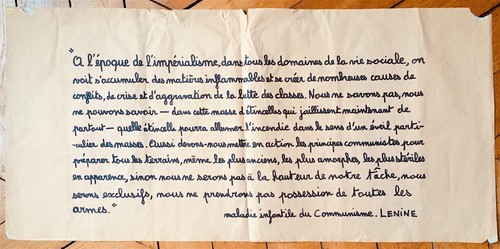 "A l'époque de l'impérialisme, dans tous les domaines de la vie sociale, on
voit s'accumuler des matières inflammables et se créer de nombreuses causes de
conflits, de crise et d'aggravation de la lutte des classes. Nous ne savons pas, nous
ne pouvons savoir — dans cette masse d'étincelles qui jaillissent maintenant de
partout — quelle étincelle pourra allumer l'incendie dans le sens d'un éveil parti-
culier des masses. Aussi devons-nous mettre en action les principes communistes pour
préparer tous les terrains, même les plus anciens, les plus amorphes, les plus stériles
en apparence, sinon nous ne serons pas à la hauteur de notre tâche, nous
serons exclusifs, nous ne prendrons pas possession de toutes les
armes."
maladie infantile du Communisme. LENINE